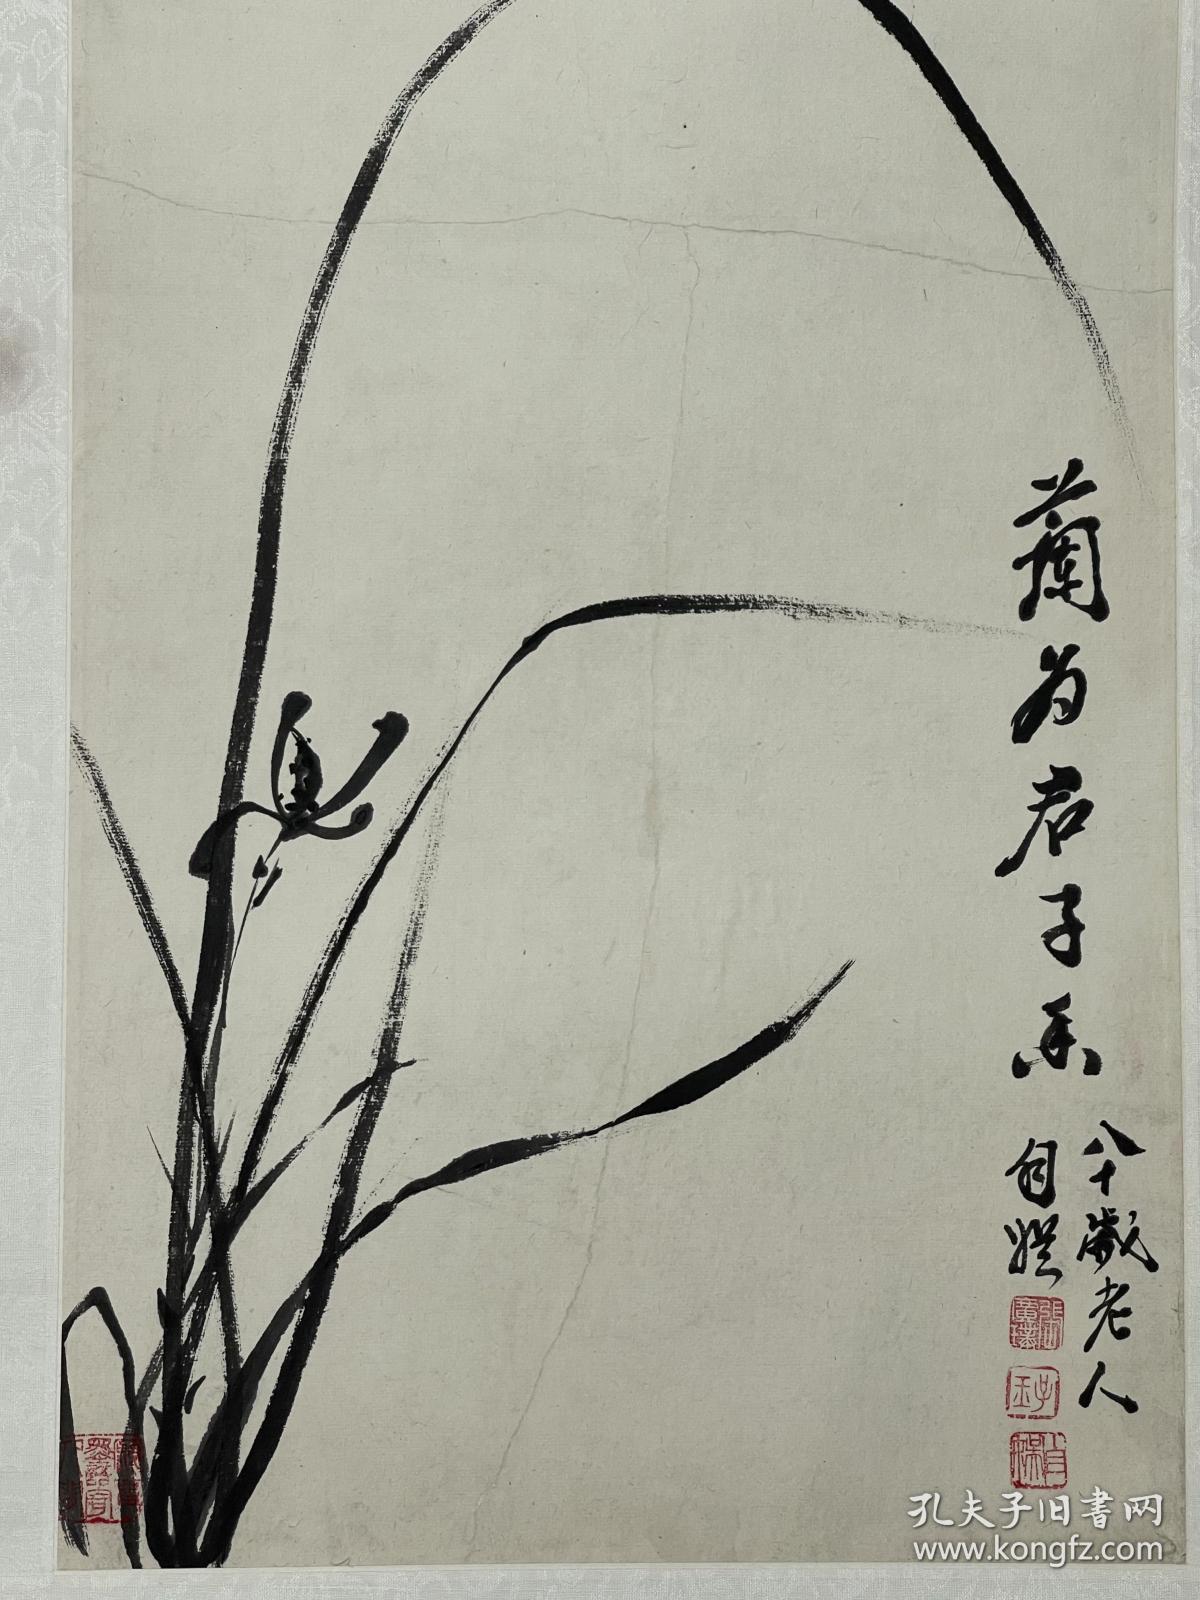 蘭为君子香
八十歲老人
自娛
孔夫子旧书网
www.kongfz.com